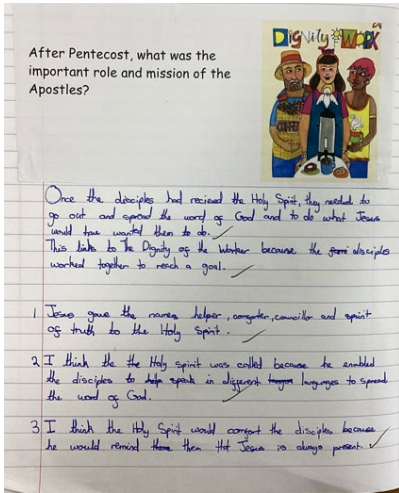 After Pentecost, what was the
important role and mission of the
Apostles?
DigNity of WORK
Once the disciples had recieved the Holy Spirit, they needed to
go out and spread the word of God and to do what Jesus
would have wanted them to do.
This links to The Dignity of the Worker because the disciples
worked together to reach a goal.
1 Jesus gave the names helper, comforter, councillor and spirit
of truth to the Holy Spirit.
2 I think the the Holy Spirit was called because he enabled
the disciples to help speak in different languages to spread
the word of God.
3 I think the Holy Spirit would comfort the disciples because
he would remind them that Jesus is always present.